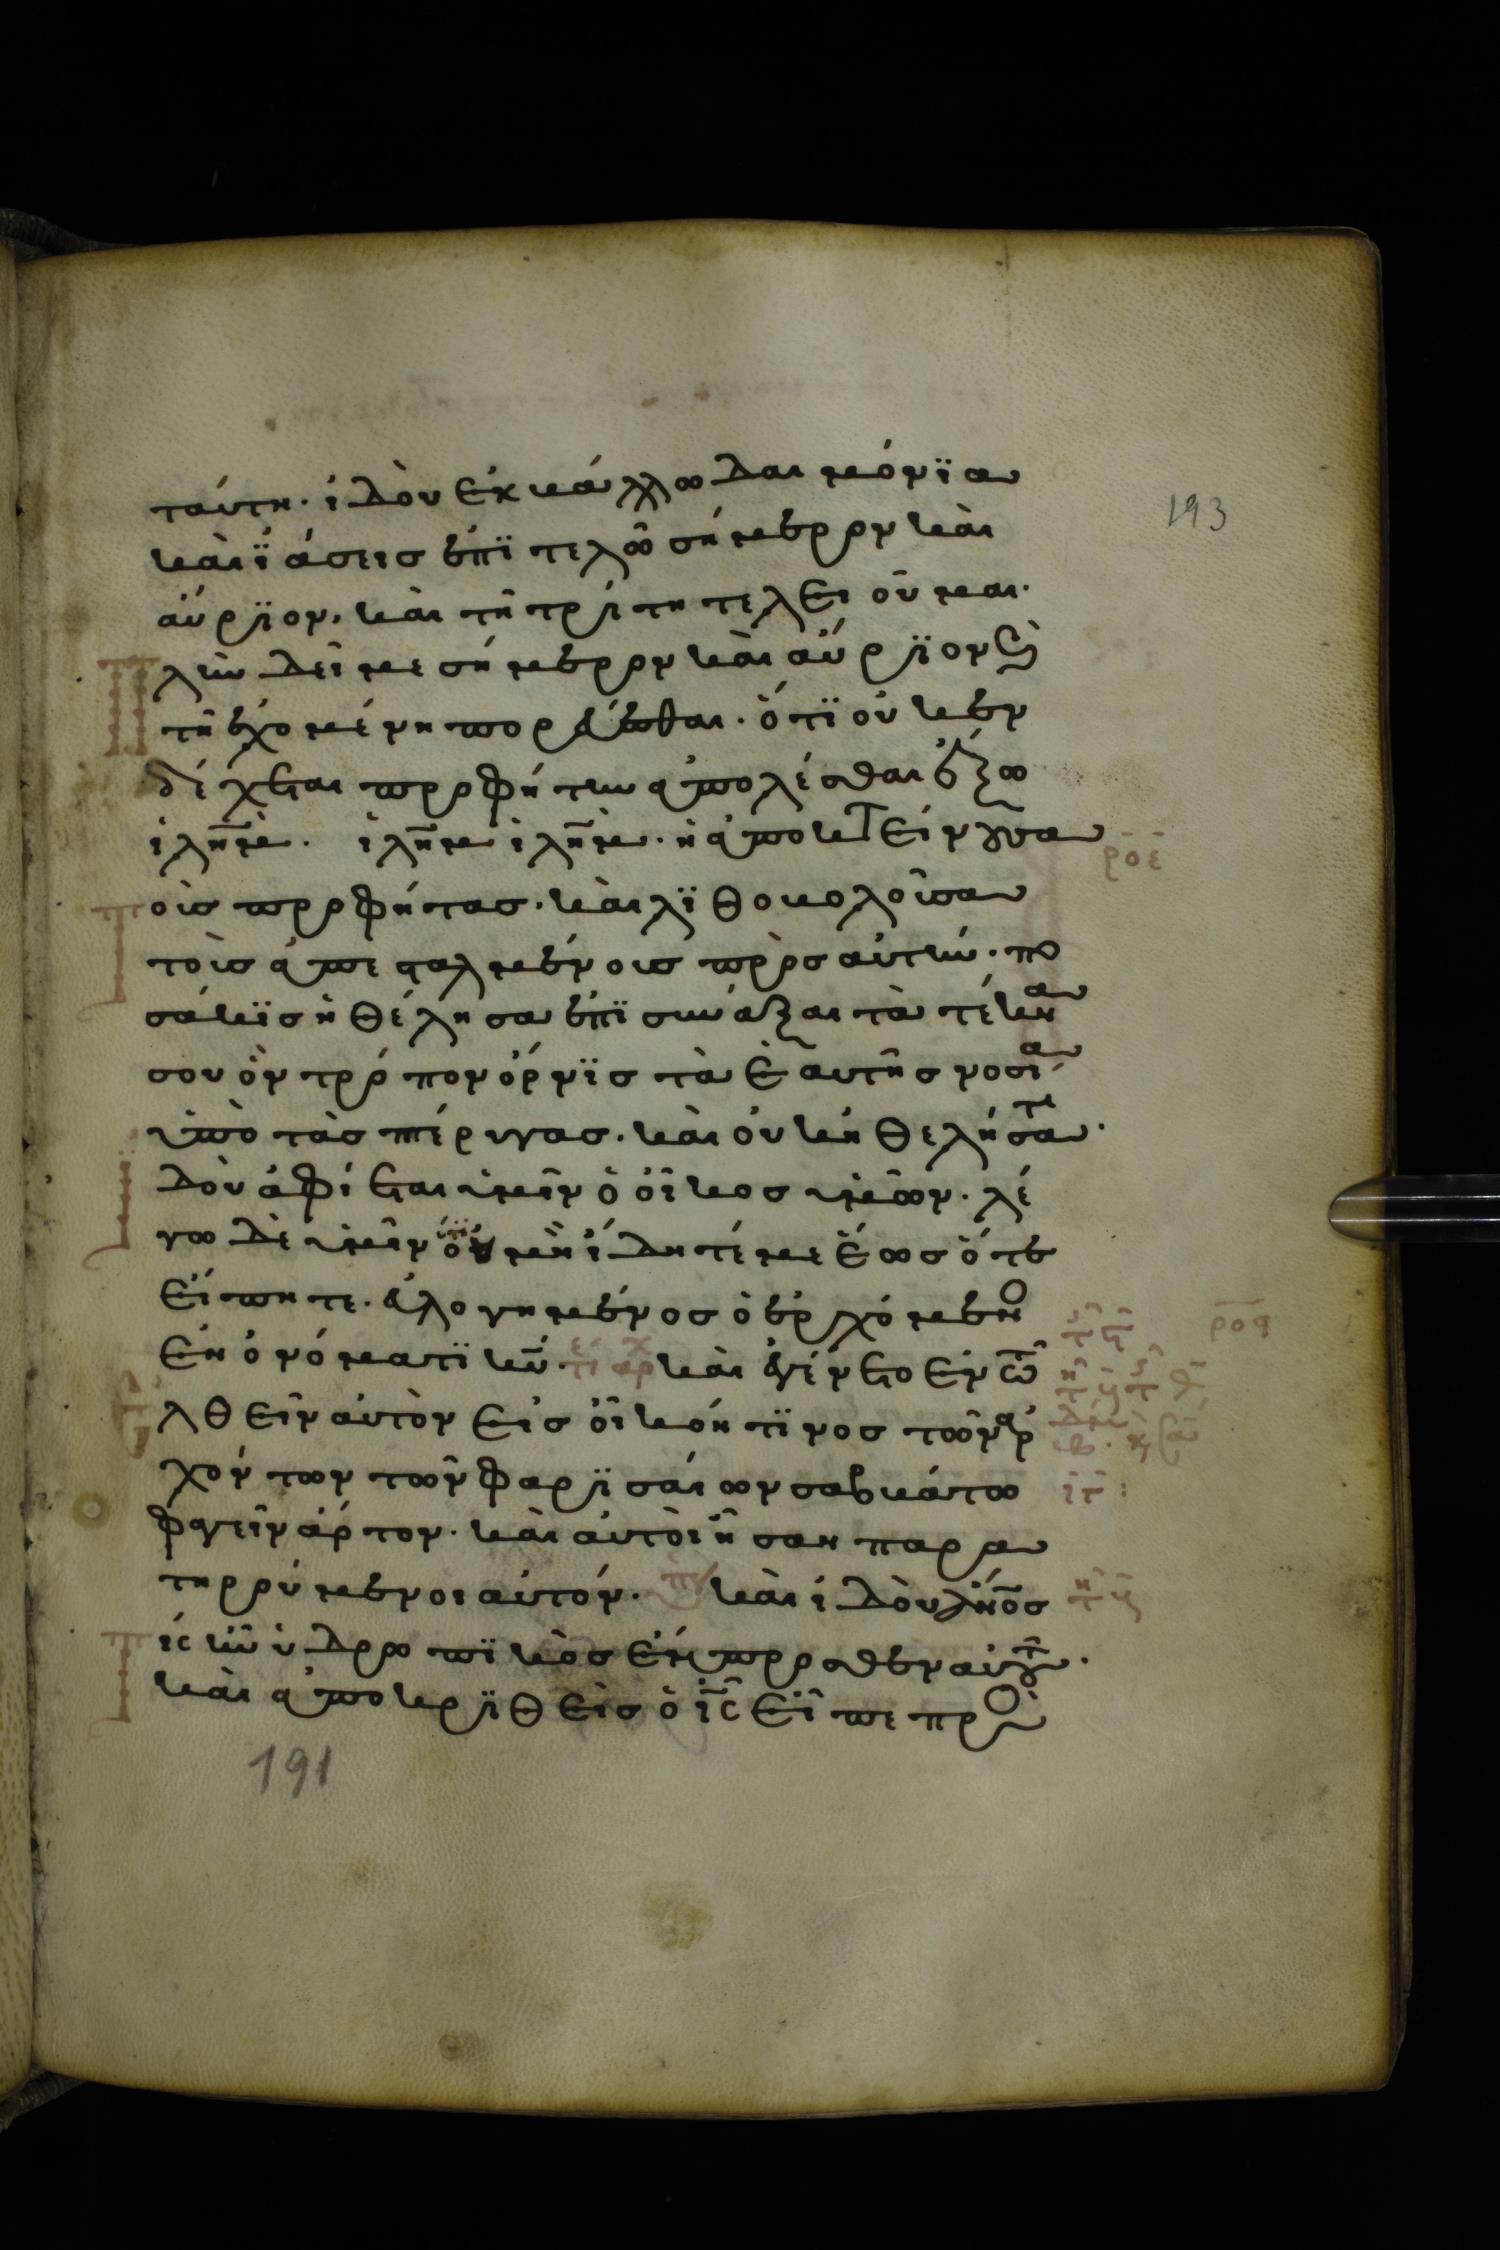 193
ταύτη· ἰδοὺ ἐκκβάλλω δαιμόνϊα
καὶ ϊάσεις ἐπϊτελῶ σήμερον καὶ
αὔρϊον, καὶ τῆ τρίτη τελειοῦμαι·
πλὴν δεῖ με σήμερον καὶ αὔρϊον καὶ
τῆ ἐχομένη πορεύεσθαι· ὅτϊ οὐκ ἐν
δέχεται προφήτην ἀπολέσθαι ἔξω
ἱλήμ· ἱλήμ ἱλήμ· ἡ ἀποκτείνουσα
τοὺς προφήτας· καὶ λϊθοβολοῦσα
τοὺς ἀπεσταλμένους πρὸς αὐτήν· πο
σάκϊς ἠθέλησα ἐπϊσυνάξαι τὰ τέκνα
σου ὃν τρόπον ὄρνϊς τὰ ἑαυτῆς νοσία
ὑπὸ τὰς πτέρυγας· καὶ οὐκ ἠθελήσατε·
ἰδοὺ ἀφίεται ὑμῖν ὁ οἶκος ὑμῶν· λέ
γω δὲ ὑμῖν ὅτϊ οὐ μὴ ἴδητέ με ἕως ὅτε
εἴπητε· εὐλογημένος ὁ ἐρχόμενος
ἐν ὀνόματϊ κυ· καὶ ἐγένετο ἐν τῶ
ἐλθεῖν αὐτὸν εἰς οἶκόν τϊνος τῶν ἀρ
χόντων τῶν φαρϊσαίων σαββάτω
φαγεῖν ἄρτον· καὶ αὐτοὶ ἦσαν παρα
τηρούμενοι αὐτόν· καὶ ἰδοὺ ανος
τις ἦν ὑδρωπϊκὸς ἔμπροσθεν αὐτοῦ·
καὶ ἀποκρϊθεὶς ὁ ις εἶπε πρὸς
191